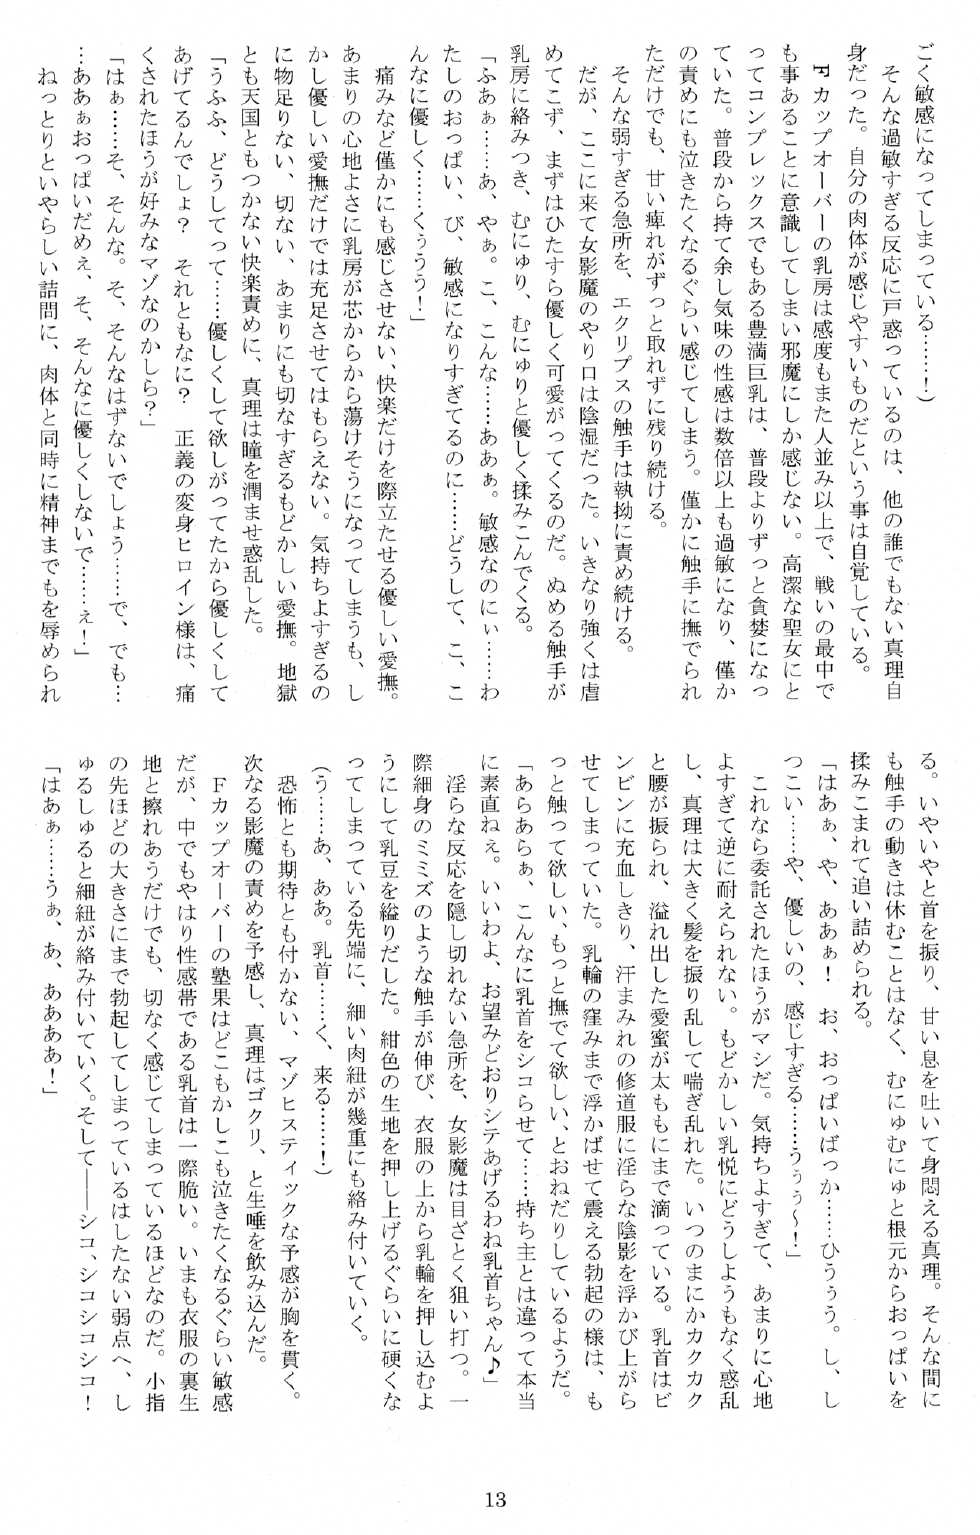 ごく敏感になってしまっている……！）
　そんな過敏すぎる反応に戸惑っているのは、他の誰でもない真理自
身だった。自分の肉体が感じやすいものだという事は自覚している。
　Ｆカップオーバーの乳房は感度もまた人並み以上で、戦いの最中で
も事あることに意識してしまい邪魔にしか感じない。高潔な聖女にと
ってコンプレックスでもある豊満巨乳は、普段よりずっと貪婪になっ
ていた。普段から持て余し気味の性感は数倍以上も過敏になり、僅か
の責めにも泣きたくなるぐらい感じてしまう。僅かに触手に撫でられ
ただけでも、甘い痺れがずっと取れずに残り続ける。
　そんな弱すぎる急所を、エクリプスの触手は執拗に責め続ける。
　だが、ここに来て女影魔のやり口は陰湿だった。いきなり強くは虐
めてこず、まずはひたすら優しく可愛がってくるのだ。ぬめる触手が
乳房に絡みつき、むにゅり、むにゅりと優しく揉みこんでくる。
「ふあぁ……あ、やぁ。こ、こんな……ああぁ。敏感なのにぃ……わ
たしのおっぱい、び、敏感になりすぎてるのに……どうして、こ、こ
んなに優しく……くううう！」
　痛みなど僅かにも感じさせない、快楽だけを際立たせる優しい愛撫。
あまりの心地よさに乳房が芯からから蕩けそうになってしまうも、し
かし優しい愛撫だけでは充足させてはもらえない。気持ちよすぎるの
に物足りない、切ない、あまりにも切なすぎるもどかしい愛撫。地獄
とも天国ともつかない快楽責めに、真理は瞳を潤ませ惑乱した。
「うふふ、どうしてって……優しくして欲しがってたから優しくして
あげてるんでしょ？　それともなに？　正義の変身ヒロイン様は、痛
くされたほうが好みなマゾなのかしら？」
「はぁ……そ、そんな。そ、そんなはずないでしょう……で、でも…
…ああぁおっぱいだめぇ、そ、そんなに優しくしないで……ぇ！」
　ねっとりといやらしい詰問に、肉体と同時に精神までもを辱められ
る。いやいやと首を振り、甘い息を吐いて身悶える真理。そんな間に
も触手の動きは休むことはなく、むにゅむにゅと根元からおっぱいを
揉みこまれて追い詰められる。
「はあぁ、や、ああぁ！　お、おっぱいばっか……ひうぅう。し、し
つこい……や、優しいの、感じすぎる……うぅぅ～！」
　これなら委託されたほうがマシだ。気持ちよすぎて、あまりに心地
よすぎて逆に耐えられない。もどかしい乳悦にどうしようもなく惑乱
し、真理は大きく髪を振り乱して喘ぎ乱れた。いつのまにかカクカク
と腰が振られ、溢れ出した愛蜜が太ももにまで滴っている。乳首はビ
ンビンに充血しきり、汗まみれの修道服に淫らな陰影を浮かび上がら
せてしまっていた。乳輪の窪みまで浮かばせて震える勃起の様は、も
っと触って欲しい、もっと撫でて欲しい、とおねだりしているようだ。
「あらあらぁ、こんなに乳首をシコらせて……持ち主とは違って本当
に素直ねぇ。いいわよ、お望みどおりシテあげるわね乳首ちゃん♪」
　淫らな反応を隠し切れない急所を、女影魔は目ざとく狙い打つ。一
際細身のミミズのような触手が伸び、衣服の上から乳輪を押し込むよ
うにして乳豆を縊りだした。紺色の生地を押し上げるぐらいに硬くな
ってしまっている先端に、細い肉紐が幾重にも絡み付いていく。
（う……あ、ああ。乳首……く、来る……！）
　恐怖とも期待とも付かない、マゾヒスティックな予感が胸を貫く。
次なる影魔の責めを予感し、真理はゴクリ、と生唾を飲み込んだ。
　Ｆカップオーバーの塾果はどこもかしこも泣きたくなるぐらい敏感
だが、中でもやはり性感帯である乳首は一際脆い。いまも衣服の裏生
地と擦れあうだけでも、切なく感じてしまっているほどなのだ。小指
の先ほどの大きさにまで勃起してしまっているはしたない弱点へ、し
ゅるしゅると細紐が絡み付いていく。そして――シコ、シコシコシコ！
「はあぁ……うぁ、あ、ああああ！」
13